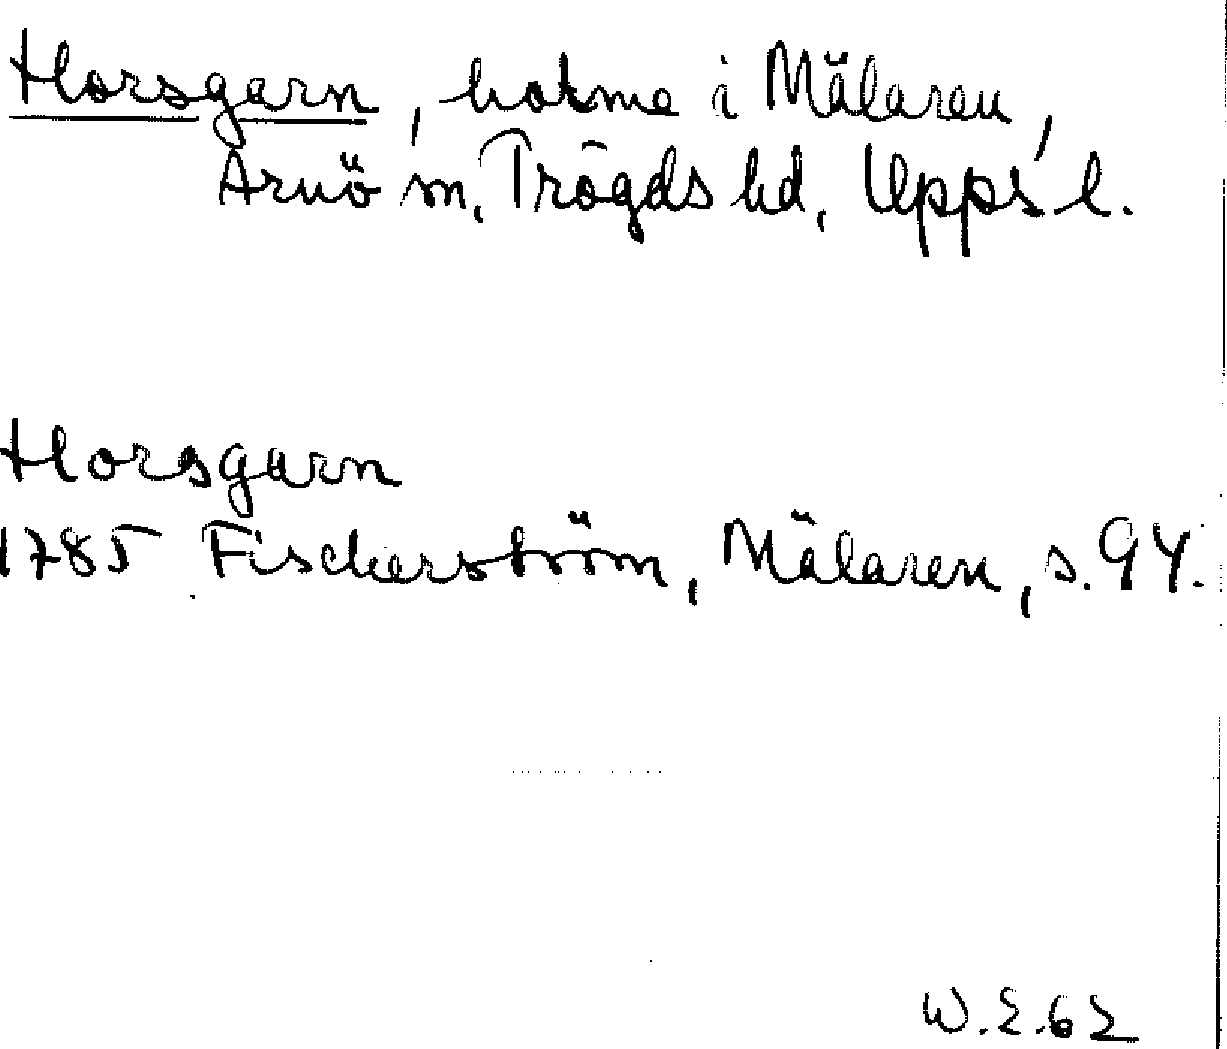 Horsgarn, holme i Mälaren,
Arnö sn, Trögds hd, Upps. l.
Horsgarn
1785 Fischerström, Mälaren, s. 94.
W.E.62